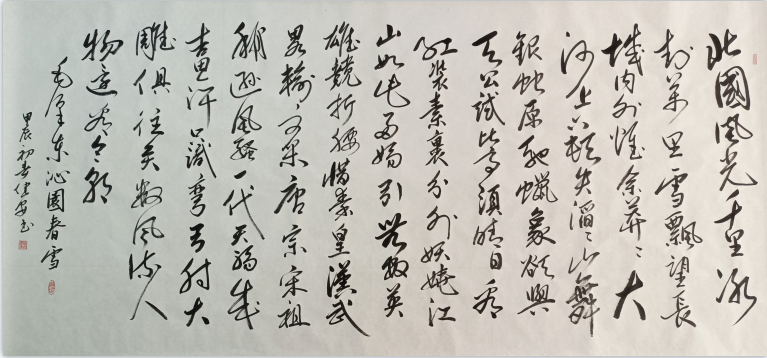 北國風光千里冰
封萬里雪飄望長
城内外惟余莽〻大
河上下頓失滔〻山舞
銀蛇原馳蠟象欲與
天公試比高須晴日看
紅裝素裹分外妖嬈江
山如此多嬌引無數英
雄競折腰惜秦皇漢武
略輸文采唐宗宋祖
稍遜風騷一代天驕成
吉思汗只識彎弓射大
雕俱往矣數風流人
物還看今朝
毛澤東沁園春雪
甲辰初春